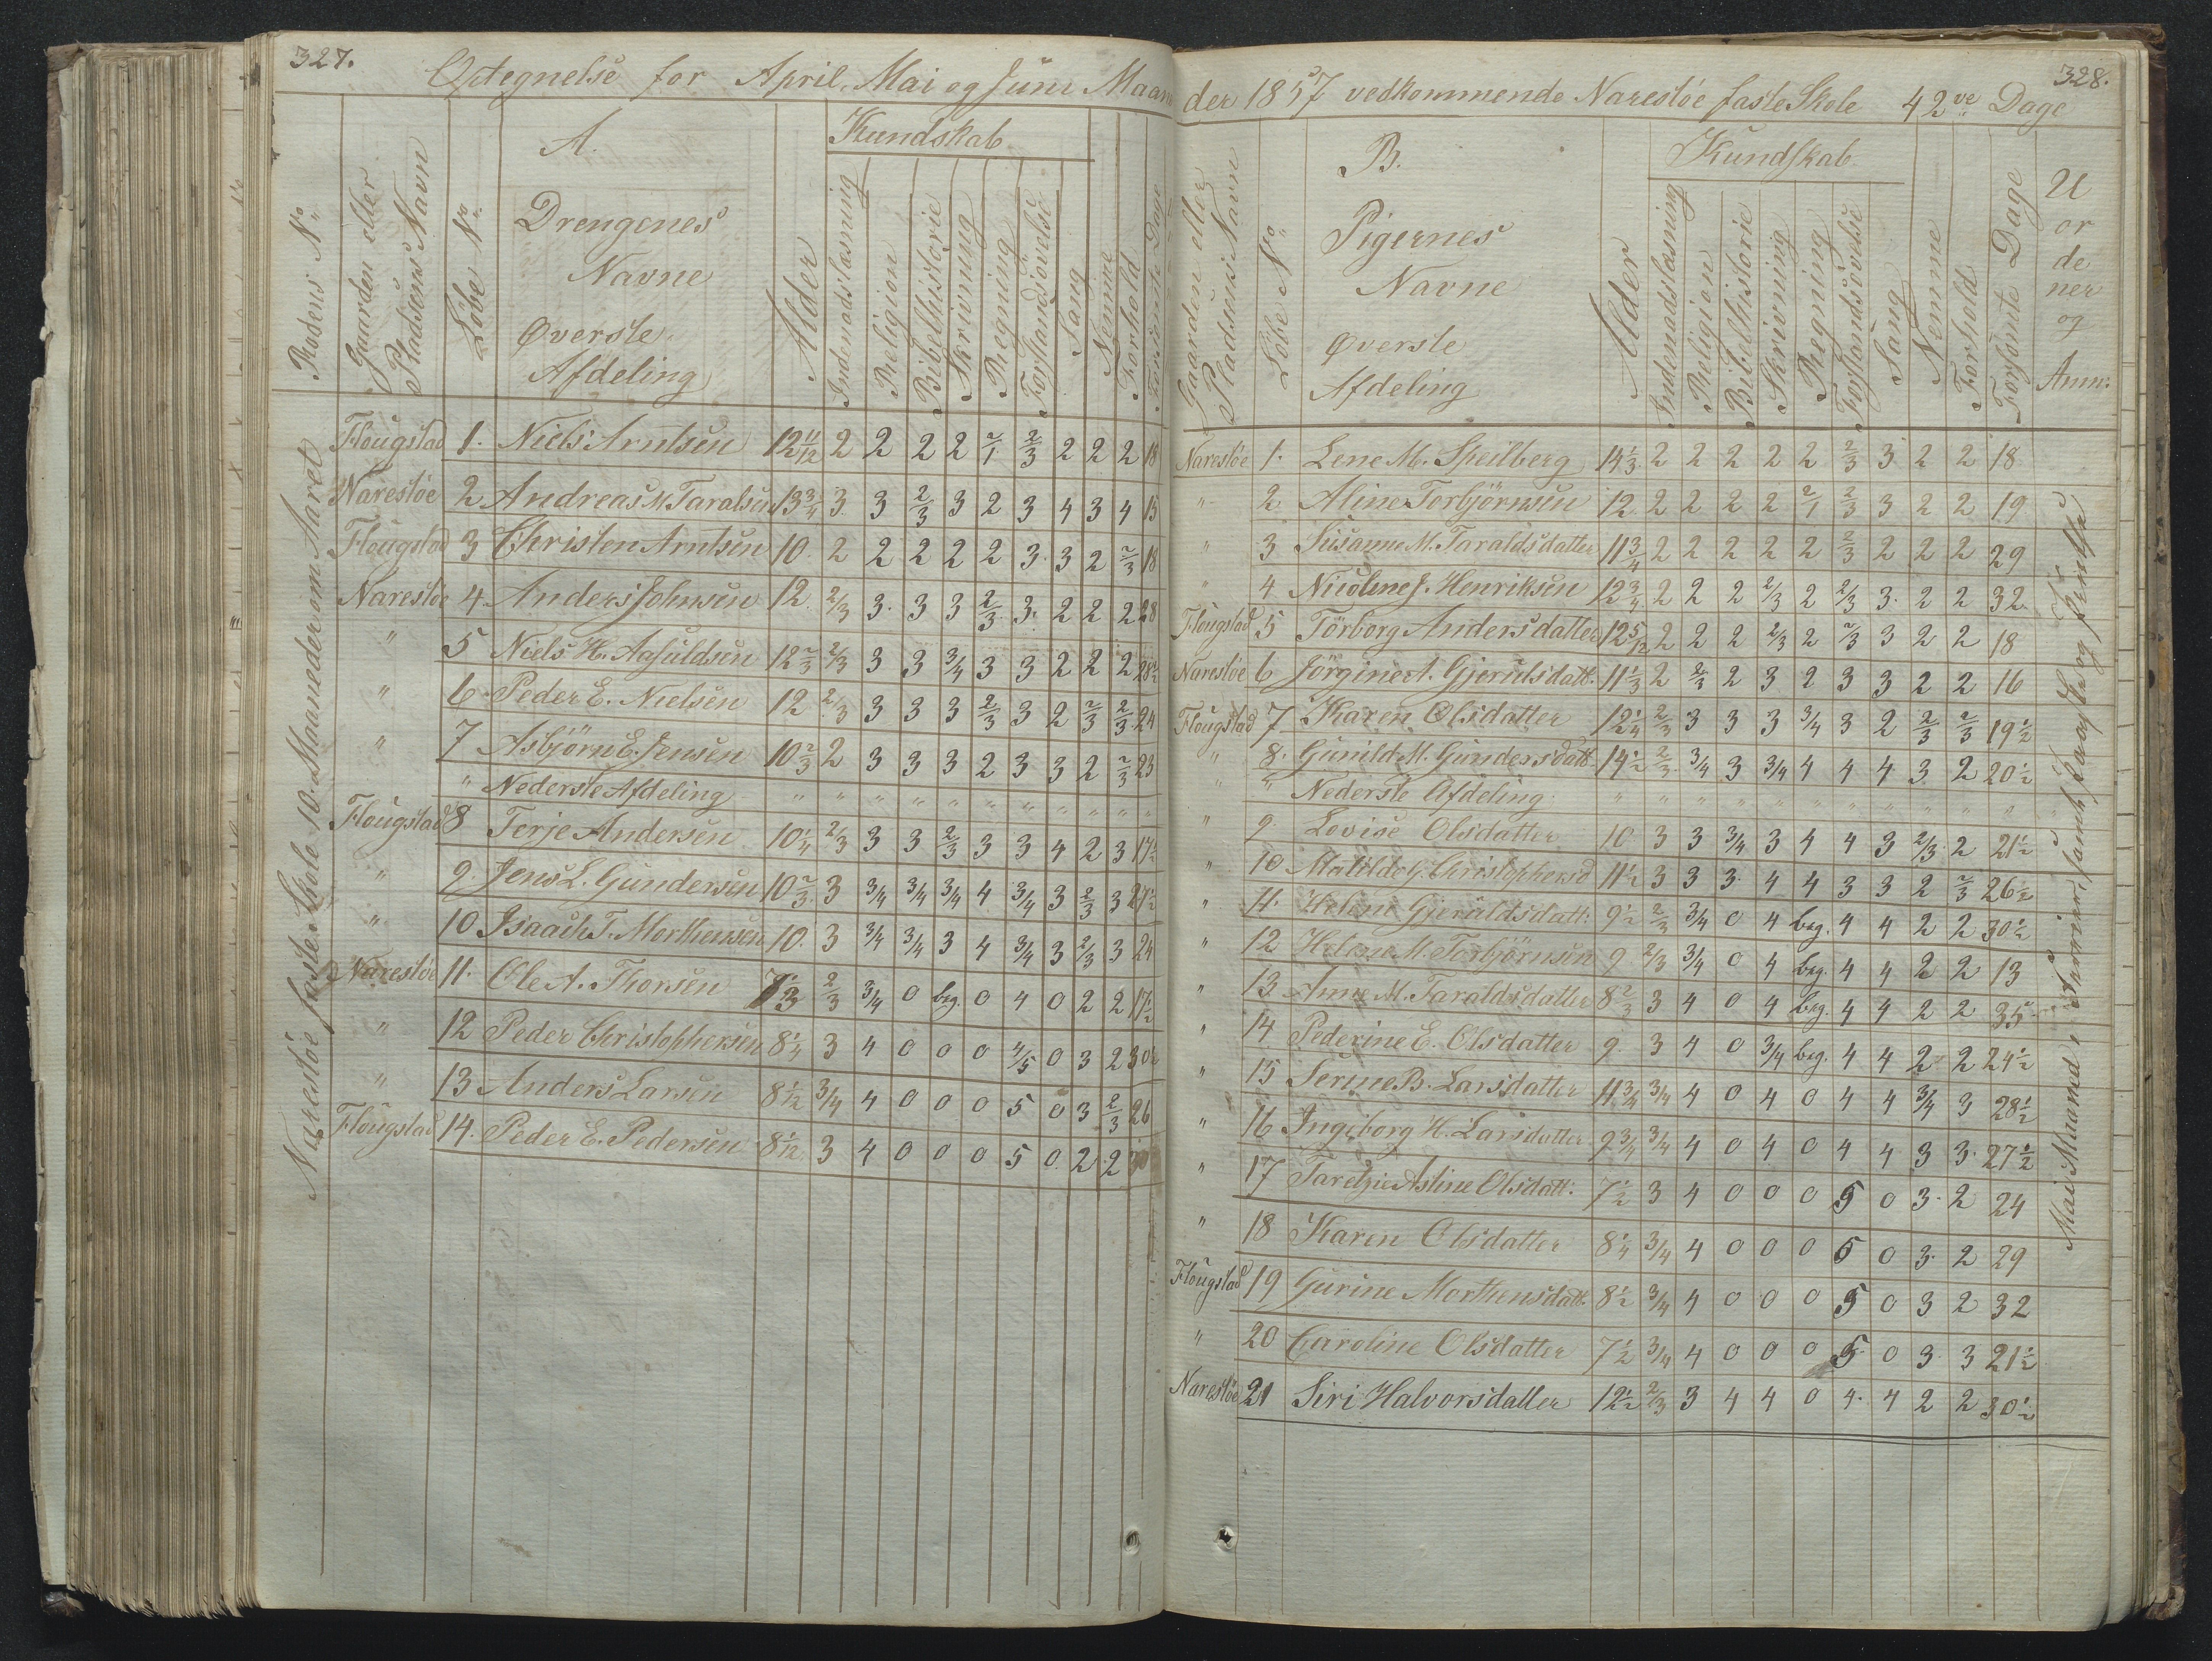 327.
Optegnelse for April, Mai og Juni Maane
Rodens No
Gaarden eller Pladsens Navn
Løbe No
A. Drengenes Navne Øverste Afdeling
Alder
Kundskab
Indenadslæsning
Religion
Bibelhistorie
Skrivning
Regning
Forstandsøvelse
Sang
Nemme
Forhold
Forsømte Dage
Narestøe faste Skole 10 Maaneder om Aaret
Flougstad 1. Niels Arntsen 12 11/12 2 2 2 2 2/1 2/3 2 2 2 18
Narestøe 2 Andreas M. Taralsen 13 3/4 3. 3 2/3 3 2 3 4 3 4 15
Flougstad 3 Christen Arntsen 10. 2 2 2 2 2 3. 3 2 2/3 18
Narestøe 4 Anders Johnsen 12. 2/3 3. 3 3 2/3 3. 2 2 2 28
" 5 Niels H. Aasuldsen 12 2/3 2/3 3 3 3/4 3 3 2 2 2 28 1/2
" 6 Peder E. Nielsen 12 2/3 3 3 3 2/3 3 2 2/3 2/3 24
" 7 Asbjørn E. Jensen 10 2/3 2 3 3 3 2 3 3 2 2/3 23
" Nederste Afdeling " " " " " " " " " " "
Flougstad 8 Terje Andersen 10 1/4 2/3 3 3 2/3 3 3 4 2 3 17 1/2
" 9. Jens L. Gundersen 10 2/3 3 3/4 3/4 3/4 4 3/4 3 2/3 3 21 1/2
" 10 Isaach T. Morthensen 10. 3 3/4 3/4 3 4 3/4 3 2/3 3 24
Narestøe 11. Ole A. Thorsen 7 1/2 2/3 3/4 0 beg. 0 4 0 2 2 17 1/2
" 12 Peder Christophersen 8 1/4 3 4 0 0 0 4/5 0 3 2 30 1/2
" 13 Anders Larsen 8 1/2 3/4 4 0 0 0 5 0 3 2/3 26
Flougstad 14. Peder E. Pedersen 8 1/2 3 4 0 0 0 5 0. 2 2 30
328.
der 1857 vedkommende Narestøe faste Skole 42ve Dage
Gaarden eller Pladsens Navn
Løbe No
B. Pigernes Navne Øverste Afdeling
Alder
Kundskab
Indenadslæsning
Religion
Bibelhistorie
Skrivning
Regning
Forstandsøvelse
Sang
Nemme
Forhold
Forsømte Dage
U or de ner og Anm:
Narestøe 1. Lene M. Speilberg 14 1/3 2 2 2 2 2 2/3 3 2 2 18
" 2 Aline Torbjørnsen 12 2 2 2 2 2/1 2/3 3 2 2 19
" 3 Susanne M. Taraldsdatter 11 3/4 2 2 2 2 2 2/3 2 2 2 29
" 4 Nicoline J. Henriksen 12 3/4 2 2 2 2/3 2 2/3 3. 2 2 32
Flougstad 5 Torborg Andersdatter 12 5/12 2 2 2 2/3 2 2/3 3 2 2 18
Narestøe 6 Jørgine A. Gjeruldsdatt. 11 1/3 2 2/3 2 3 2 3 3 2 2 16
Flougstad 7 Karen Olsdatter 12 1/4 2/3 3 3 3 3/4 3 2 2/3 2/3 19 1/2
" 8. Gunild M. Gundersdatt. 14 1/2 2/3 3/4 3 3/4 4 4 4 3. 2 20 1/2
" Nederste Afdeling " " " " " " " " " " "
" 9. Lovise Olsdatter 10 3 3 3/4 3 4 4 3 2/3 2 21 1/2
" 10 Matilde G. Christophersd 11 1/2 3 3 3. 4 4 3 3 2 2/3 26 1/2
" 11. Helene Gjeruldsdatt: 9 1/2 2/3 3/4 0 4 beg. 4 4 2 2 30 1/2
" 12 Helene M. Torbjørnsen 9 2/3 3/4 0 4 beg. 4 4 2 2 13
" 13 Anne M. Taraldsdatter 8 2/3 3 4 0 4 beg. 4 4 2 2 35
" 14 Pederine E. Olsdatter 9. 3 4 0 3/4 beg. 4 4 2 2 24 1/2
" 15 Serine B. Larsdatter 11 3/4 3/4 4 0 4 0 4 4 3/4 3 28 1/2
" 16 Ingeborg H. Larsdatter 9 3/4 3/4 4 0 4 0 4 4 3 3. 27 1/2
" 17 Asline Olsdatt: 7 1/2 3 4 0 0 0 5 0 3. 2 24
" 18 Karen Olsdatter 8 1/4 3/4 4 0 0 0 5 0 3. 2 29
Flougstad 19 Gurine Morthensdatt. 8 1/2 3/4 4 0 0 0 5 0 3 2 32
" 20 Caroline Olsdatter 7 1/2 3/4 4 0 0 0 5. 0 3. 3 21 1/2
Narestøe 21 Siri Halvorsdatter 12 1/2 2/3 3 4 4 0 4. 4 2 2 30 1/2
Mai Maaned Ferier samt Paaske og Pintse